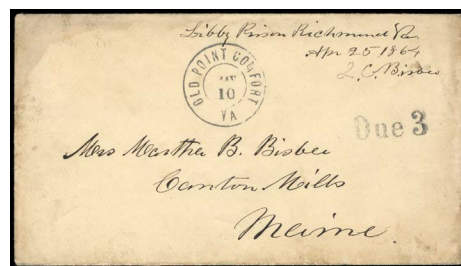 Libby Prison Richmond Va.
Apr 25 1864
L. C. Bisbee
OLD POINT COMFORT
MAY
10
VA
Due 3
Mrs Martha B. Bisbee
Canton Mills
Maine.